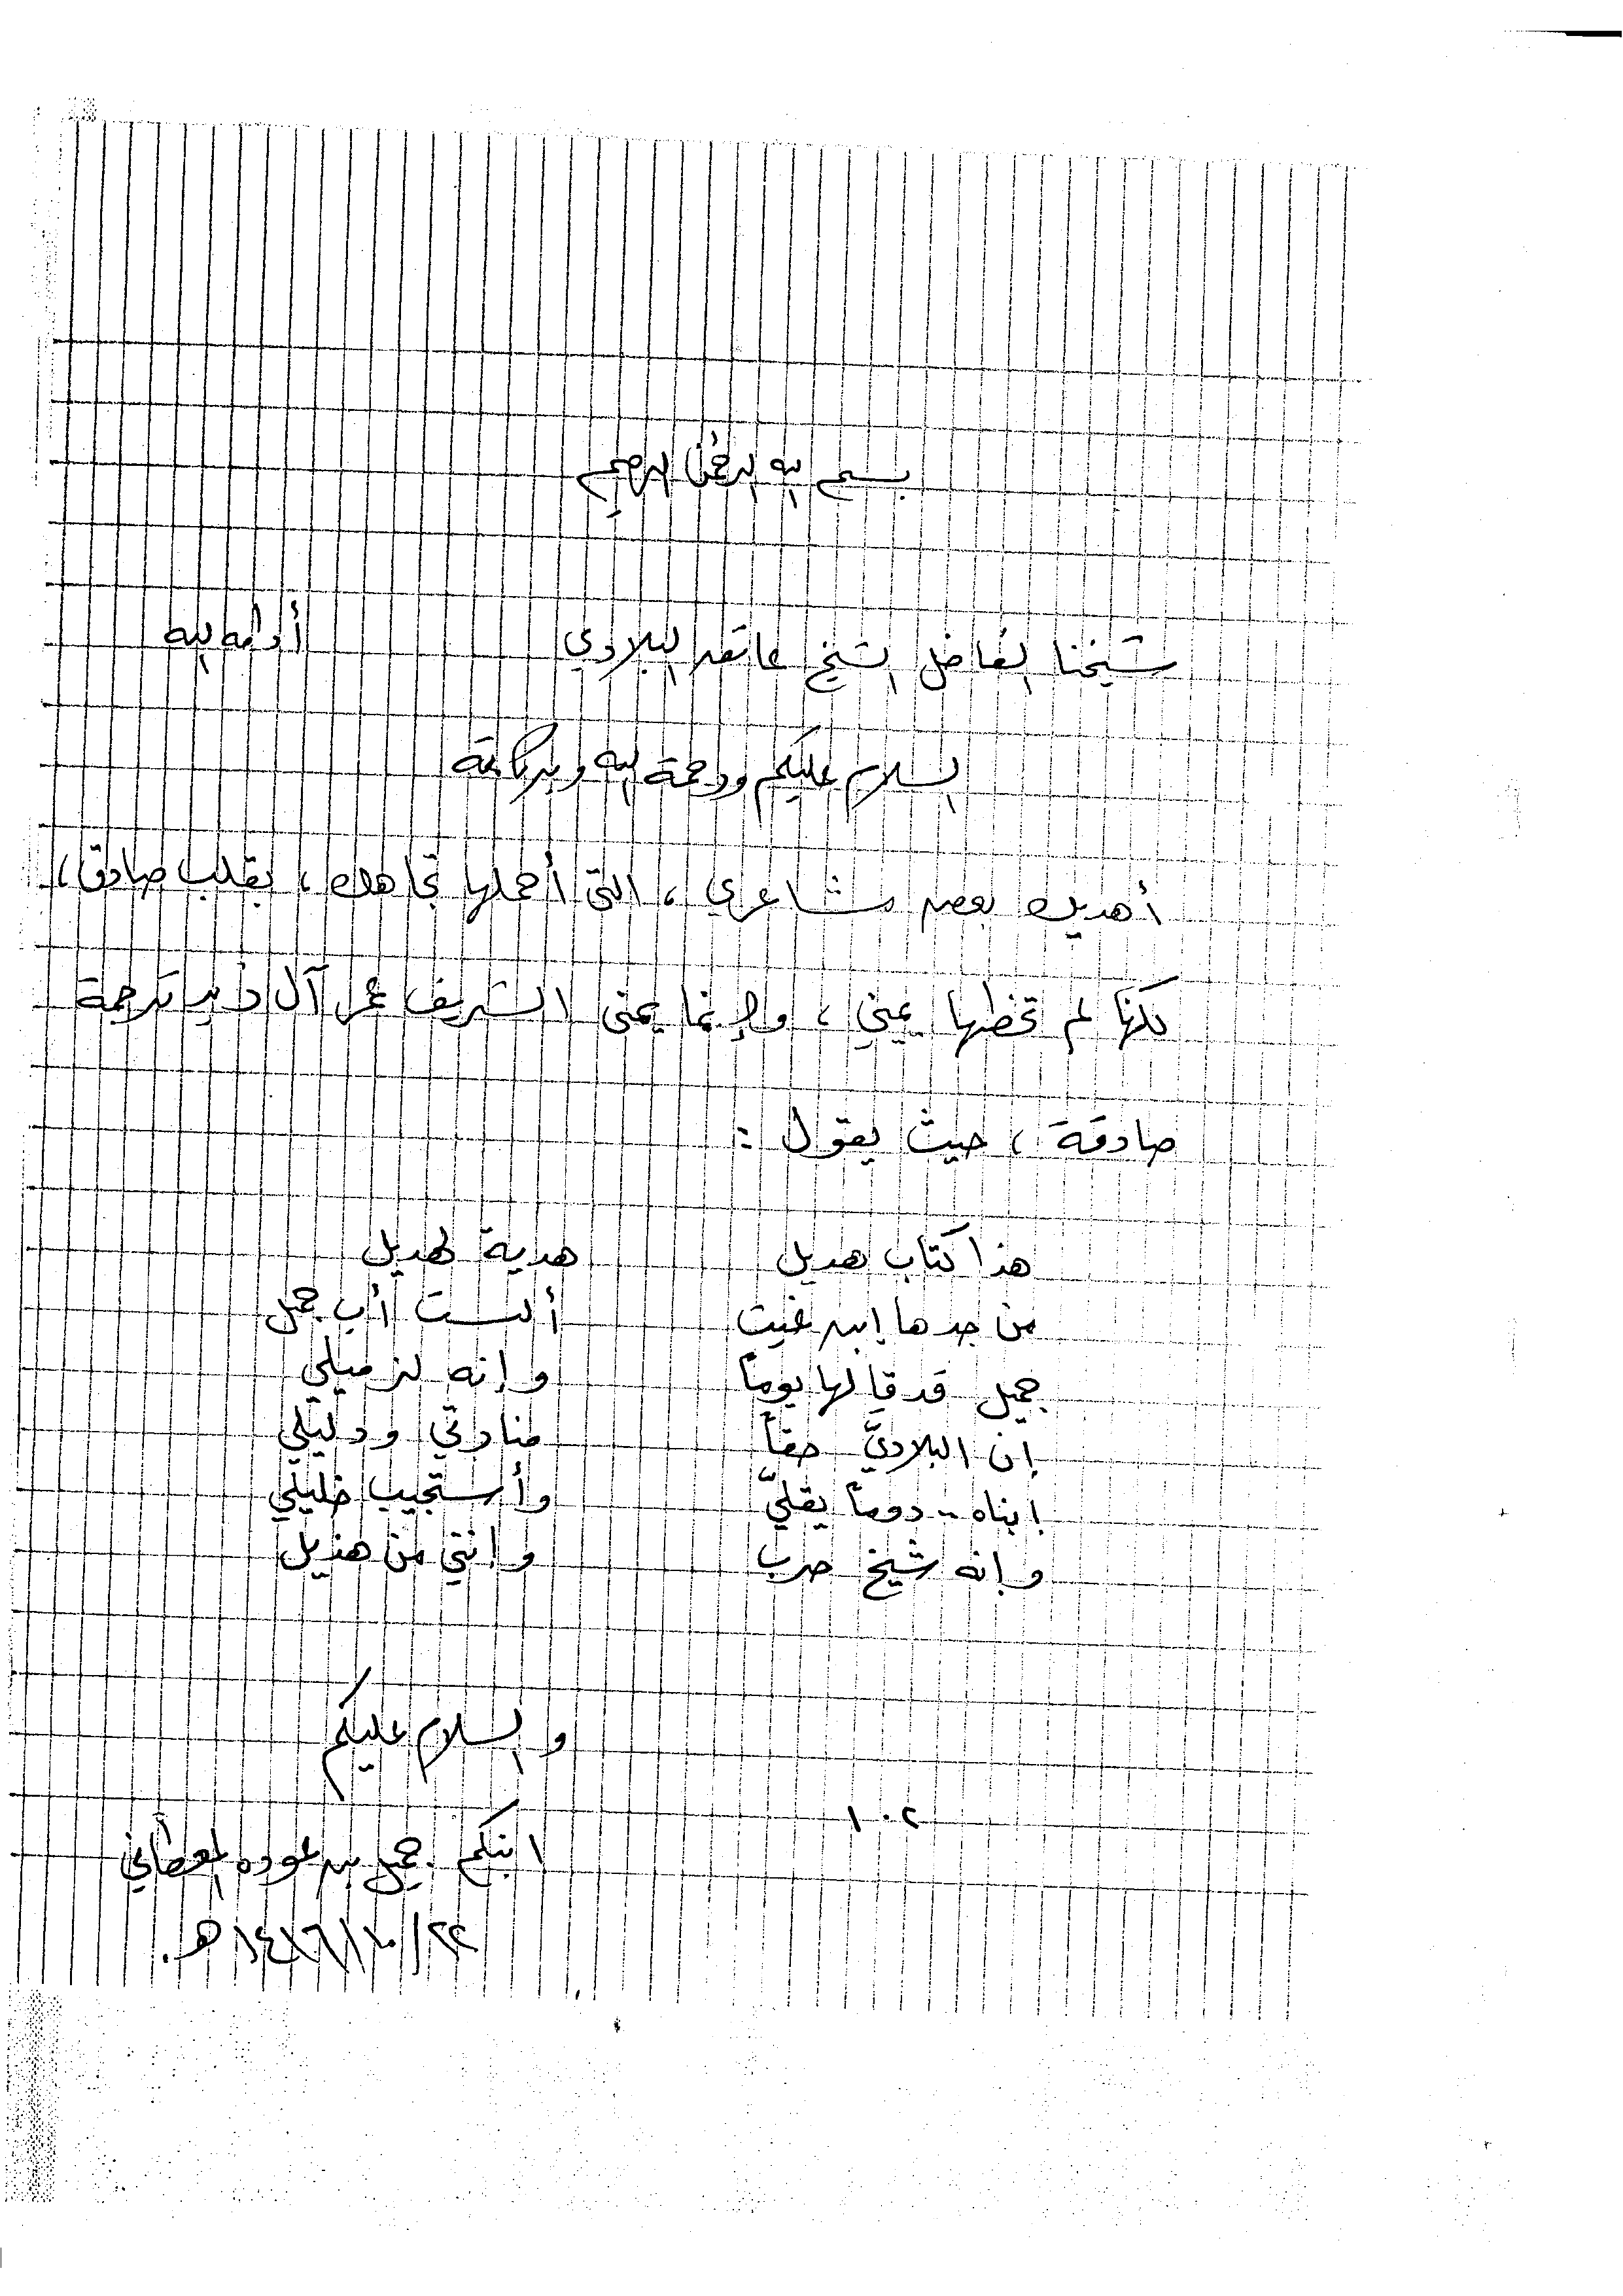 بسم الله الرحمن الرحيم
شيخنا الفاضل الشيخ عاتق البلادي أدامه الله
السلام عليكم ورحمة الله وبركاته
أهديك بعض مشاعري، التي أحملها تجاهك، بقلب صادق،
لكنها لم تخطها يميني، وإنما يمنى الشريف محمد آل زيد ترجمة
صادقة، حيث يقول :
هذا كتاب هديل هدية لهديل
من جدها ابن غيث ألست أب جميل
جميل قد قالها يوماً وإنه لزميلي
إن البلاديَّ حقاً منارتي ودليلي
ابناه .. دوماً يقليّ وأستجيب خليلي
وإنه شيخ حرب وإنني من هذيل
والسلام عليكم
١٠٢
ابنكم جميل بن عوده المعطاني
١٤١٦/١٠/٢٢ هـ.